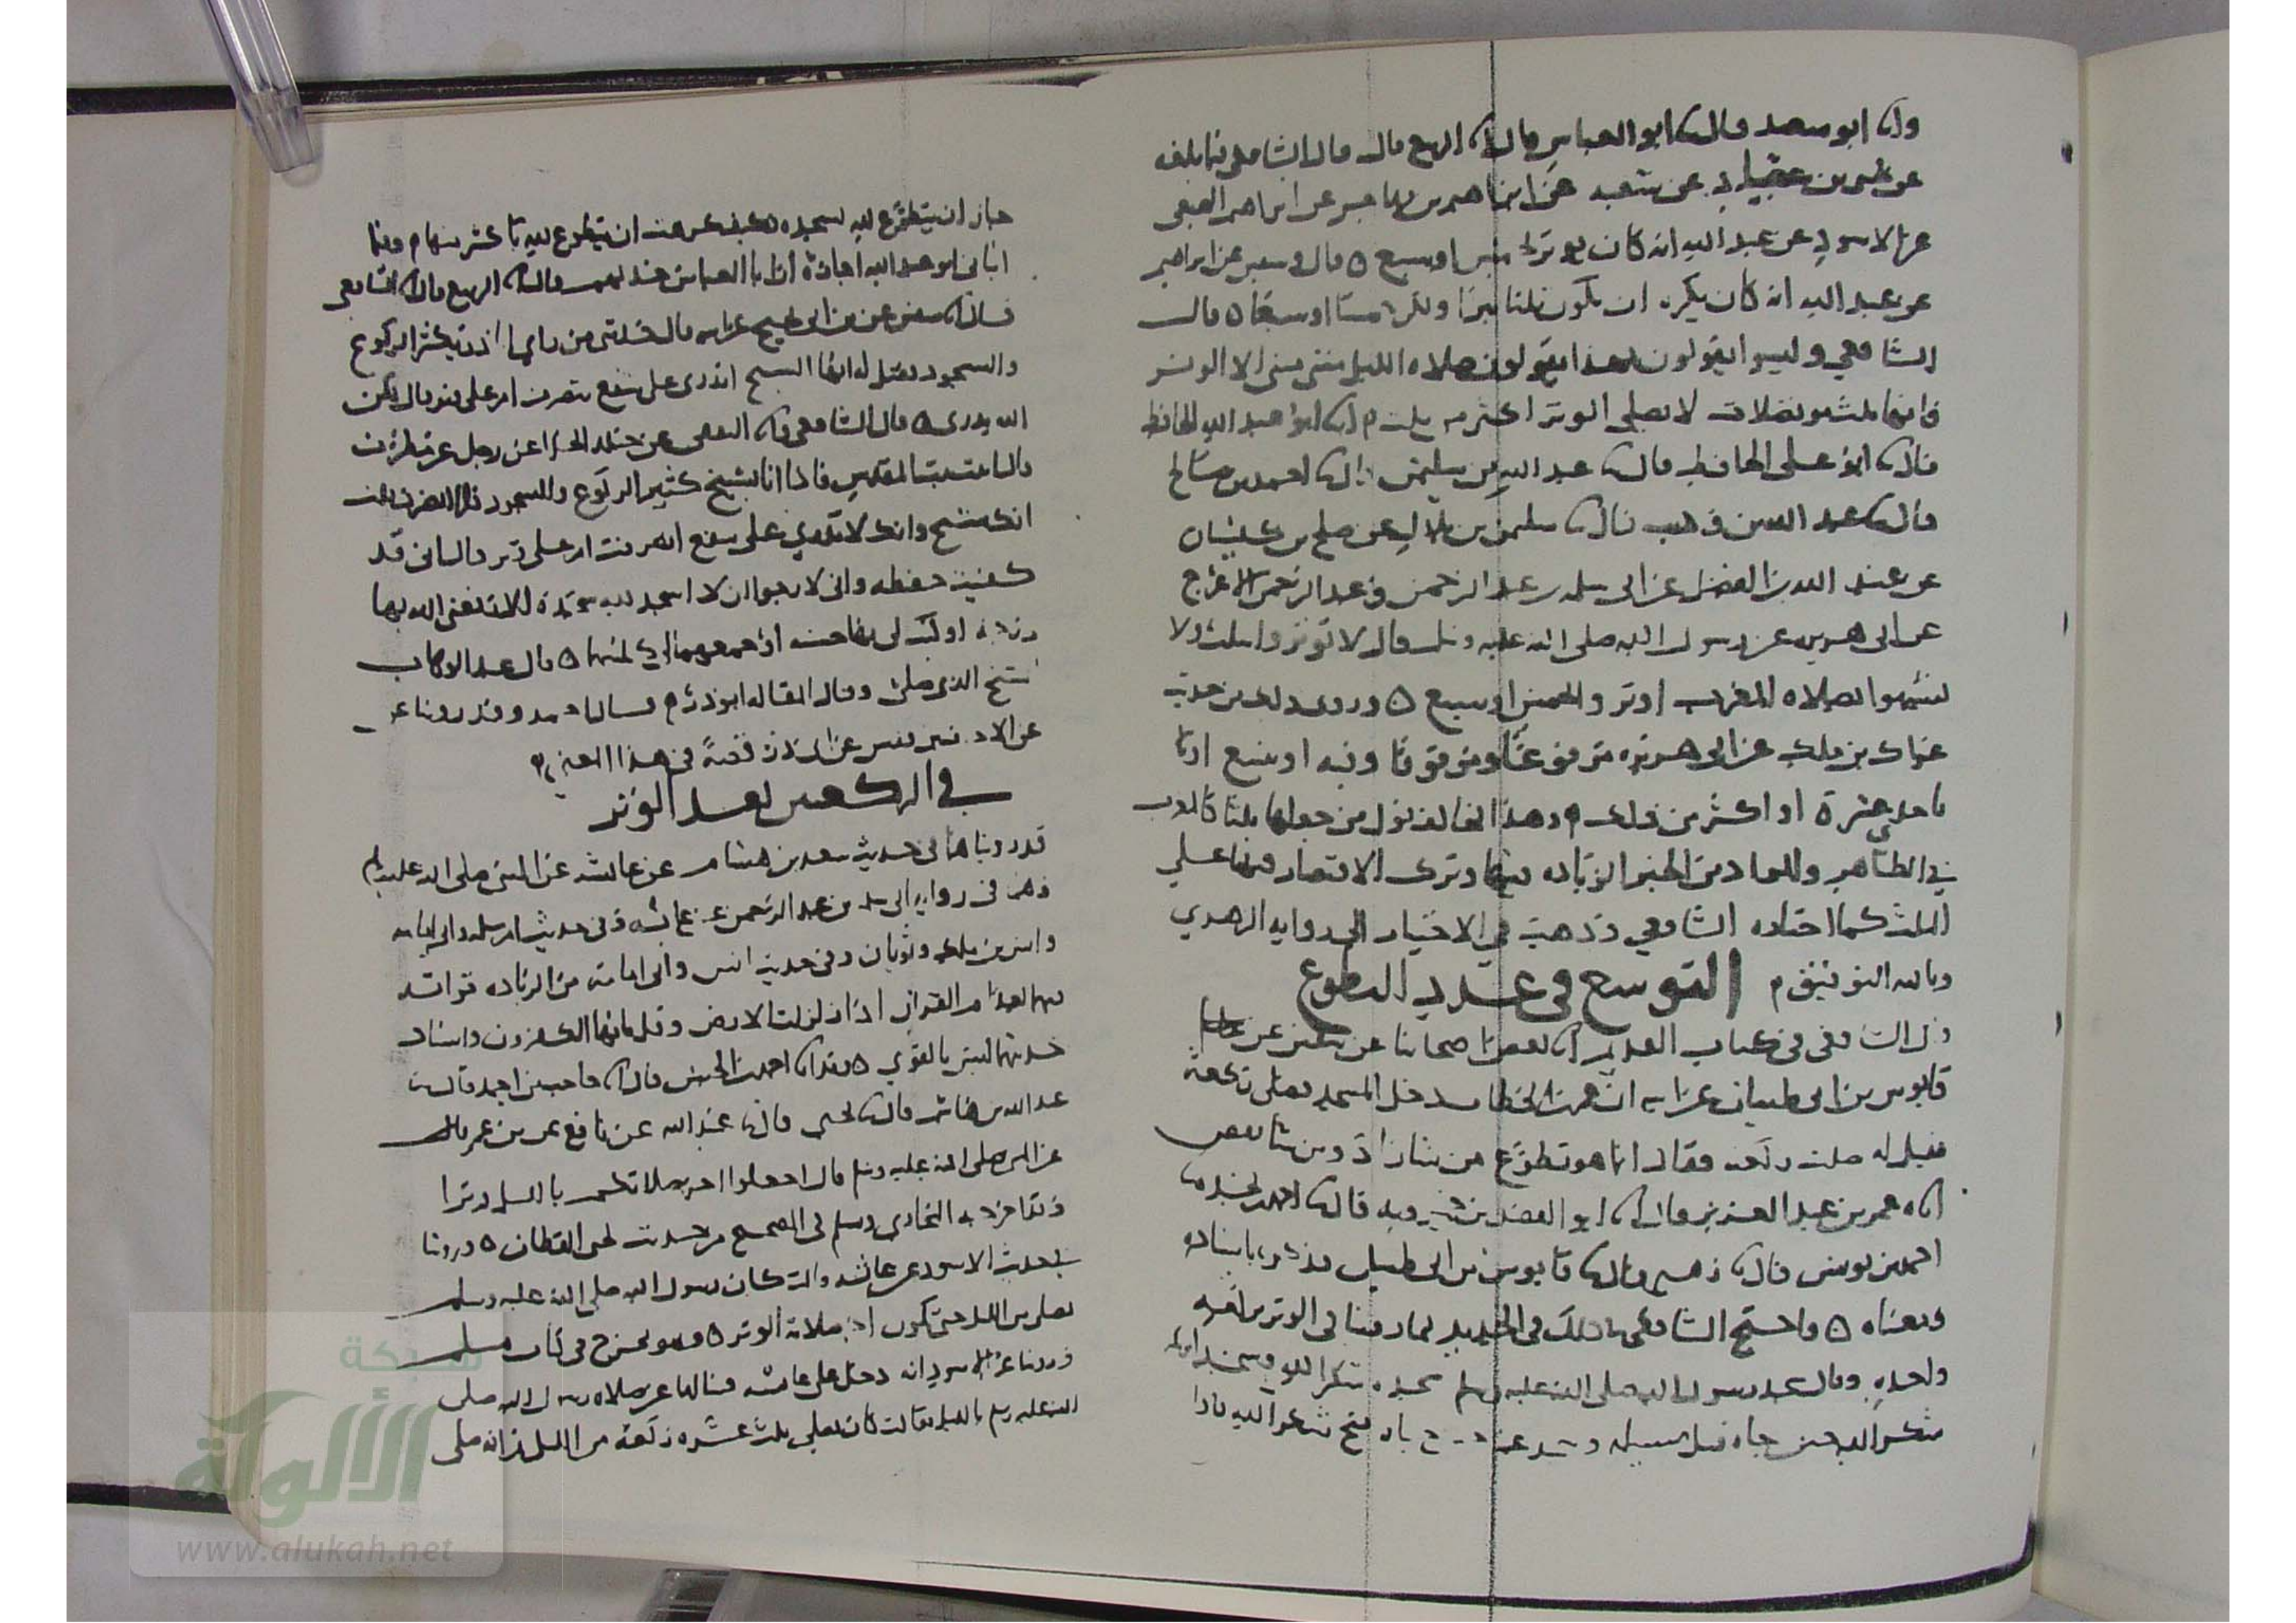 وانا ابو سعد قال نا ابو العباس قال انا الربيع قال قال الشافعي فيما بلغه
عن شعبة عن ابراهيم بن مهاجر عن ابراهيم النخعي
عن الاسود عن عبد الله انه كان يوتر بخمس او سبع ٥ قال وسفين عن ابراهيم
عن عبد الله انه كان يكره ان تكون ثلثا بترا ولكن خمسا او سبعا ٥ قال
الشافعي وليسوا يقولون بهذا يقولون صلاه الليل مثنى مثنى الا الوتر
فانها ثلث متصلات لا يصلى الوتر اكثر من ثلث م انا ابو عبد الله الحافظ
قال نا ابو علي الحافظ قال نا عبد الله بن سليمن قال نا احمد بن صالح
قال نا عبد الله بن وهب قال نا سليمن بن بلال عن صلح بن كيسان
عن عبد الله بن الفضل عن ابي سلمه بن عبد الرحمن وعبد الرحمن الاعرج
عن ابي هريره عن رسول الله صلى الله عليه وسلم قال لا توتروا بثلث ولا
تشبهوا بصلاه المغرب اوتروا بخمس او سبع ٥ وروى ذلك من حديث
عراك بن ملك عن ابي هريره مرفوعا وموقوفا وفيه او بتسع او
باحدى عشرة او اكثر من ذلك م وهذا يخالف قول من جعلها ثلثا كالمغرب
في الظاهر والمراد من الخبر الزياده فيها وترك الاقتصار فيها على
الثلث كما اختاره الشافعي وذهب في الاختيار الى روايه الزهري
وبالله التوفيق م التوسع في عدد التطوع
قال الشافعي في كتاب القديم انا بعض اصحابنا عن سفين عن
قابوس بن ابي ظبيان عن ابيه ان عمر بن الخطاب دخل المسجد فصلى ركعة
فقيل له صليت ركعه فقال انما هو تطوع من شا زاد ومن شا نقص
اناه عمر بن عبد العزيز قال انا ابو الفضل بن خميرويه قال نا احمد بن نجده نا
احمد بن يونس قال نا زهير قال نا قابوس بن ابي ظبيان فذكره باسناده
ومعناه ٥ واحتج الشافعي في ذلك في الجديد بما روينا في الوتر بركعه
واحده وقال سجد رسول الله صلى الله عليه وسلم سجده شكرا لله وسجد ابو بكر
شكرا لله حين جاه قتل مسيلمه وسجد عمر حين جاه فتح شكرا لله فاذا
جاز ان يتطوع لله بسجده فكيف كرهت ان يتطوع لله باكثر منها م وفيما
انباني ابو عبد الله اجازة ان ابا العباس حدثهم قال نا الربيع قال نا الشافعي
قال نا سفين عن ابن ابي نجيح عن ابيه قال حدثني من راى ابا ذر يكثر الركوع
والسجود فقيل له ايها الشيخ اتدري على شفع تنصرف ام على وتر قال لكن
الله يدرى ٥ قال الشافعي وانا الثقفي عن خالد الحذا عن رجل عن مطرف
قال اتيت بيت المقدس فاذا انا بشيخ كثير الركوع والسجود فلما انصرف قلت
انك شيخ وانك لا تدري على شفع انصرفت ام على وتر قال انى قد
كفيت حفظه واني لارجو ان لا اسجد لله سجدة الا رفعني الله بها
درجة او كتب لي بها حسنه او جمعهما لي كلتيهما ٥ قال عبد الوهاب
الشيخ الذي صلى وقال المقاله ابو ذر م قال احمد وقد روينا عن
عن الاحنف بن قيس عن ابي ذر قصة في هذا المعنى م
في الركعتين بعد الوتر
قد رويناهما في حديث سعد بن هشام عن عائشه عن النبي صلى الله عليه وسلم
وهو في روايه ابي سلمه بن عبد الرحمن عن عائشه وفي حديث ام سلمه وابي امامه
وانس بن ملك وثوبان وفي حديث انس وابي امامه من الزياده قراته
فيهما بعد ام القران اذا زلزلت الارض وقل يايها الكفرون واسناد
حديثهما ليس بالقوي ٥ وقد انا احمد بن الحسن قال نا حاجب بن احمد قال نا
عبد الله بن هاشم قال نا يحيى قال نا عبيد الله عن نافع عن بن عمر قال
عن النبي صلى الله عليه وسلم قال اجعلوا اخر صلاتكم بالليل وترا
وقد اخرجه البخاري ومسلم في الصحيح من حديث يحيى القطان ٥ وروينا
في حديث الاسود عن عائشه قالت كان رسول الله صلى الله عليه وسلم
يصلي من الليل حتى تكون اخر صلاته الوتر ٥ وهو مخرج في كتاب مسلم
وروينا عن الاسود انه دخل على عائشه فسالها عن صلاه رسول الله صلى
الله عليه وسلم بالليل فقالت كان يصلي ثلث عشره ركعه من الليل ثم انه صلى
شبكة
الألوكة
www.alukah.net